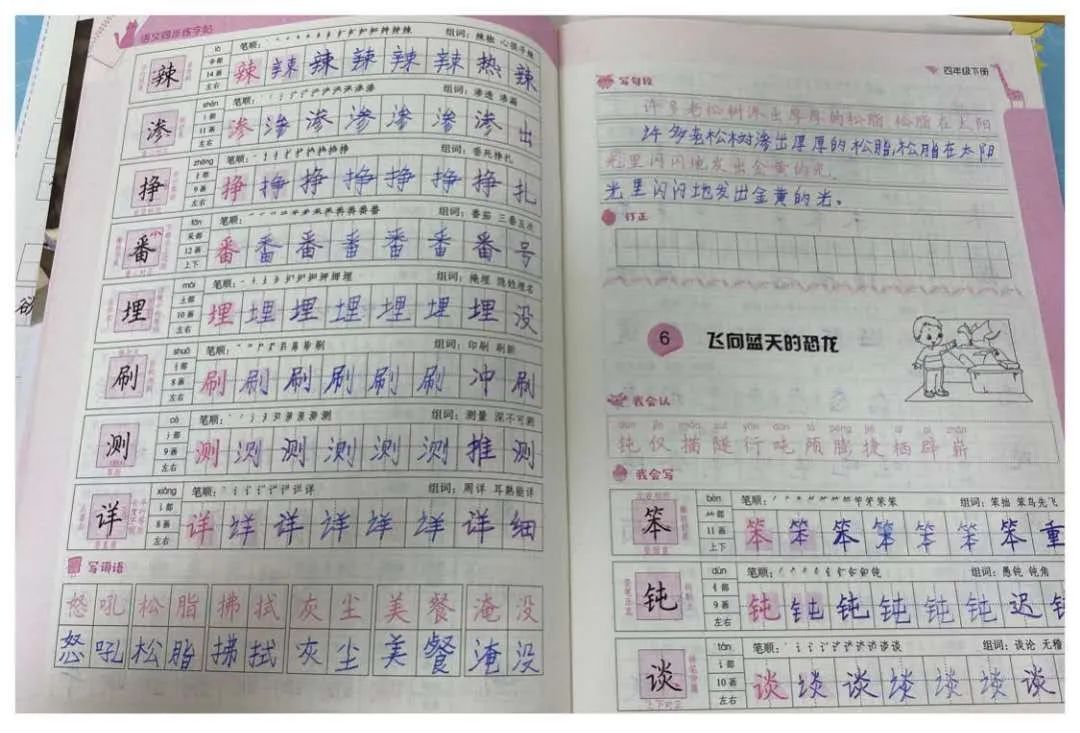 语文同步练字帖
辣
là
辛部
14画
左右
笔顺：
组词：辣椒 心狠手辣
辣 辣 辣 辣 辣 辣 热 辣
渗
shèn
氵部
11画
左右
笔顺：
组词：渗透 渗漏
渗 渗 渗 渗 渗 渗 渗 出
挣
zhēng
扌部
9画
左右
笔顺：
组词：垂死挣扎
挣 挣 挣 挣 挣 挣 挣 扎
番
fān
采部
12画
上下
笔顺：
组词：番茄 三番五次
番 番 番 番 番 番 番 号
埋
mái
土部
10画
左右
笔顺：
组词：掩埋 隐姓埋名
埋 埋 埋 埋 埋 埋 埋 没
刷
shuā
刂部
8画
左右
笔顺：
组词：印刷 刷新
刷 刷 刷 刷 刷 刷 冲 刷
测
cè
氵部
9画
左右
笔顺：
组词：测量 深不可测
测 测 测 测 测 测 推 测
详
xiáng
讠部
8画
左右
笔顺：
组词：周详 耳熟能详
详 详 详 详 详 详 详 细
写词语
怒吼 松脂 拂拭 灰尘 美餐 淹没
怒吼 松脂 拂拭 灰尘 美餐 淹没
欲
四年级下册
写句段
许多老松树渗出厚厚的松脂，松脂在太阳
许多老松树渗出厚厚的松脂，松脂在太阳
光里闪闪地发出金黄的光。
光里闪闪地发出金黄的光。
订正
6 飞向蓝天的恐龙
我会认
dùn jǐn miáo suí yán dūn lú péng jié qī pì zhǎn
钝 仅 描 隧 行 吨 颅 膨 捷 栖 辟 崭
我会写
笨
bèn
⺮部
11画
上下
笔顺：
组词：笨拙 笨鸟先飞
笨 笨 笨 笨 笨 笨 笨 重
钝
dùn
钅部
9画
左右
笔顺：
组词：愚钝 钝角
钝 钝 钝 钝 钝 钝 迟 钝
谈
tán
讠部
10画
左右
笔顺：
组词：谈论 无稽
谈 谈 谈 谈 谈 谈 谈